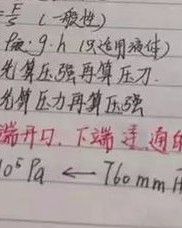 =F/S (一般性)
P液: g·h (只适用液体)
先算压强再算压力.
先算压力再算压强
端开口、下端连通的
10⁵Pa ← 760mm